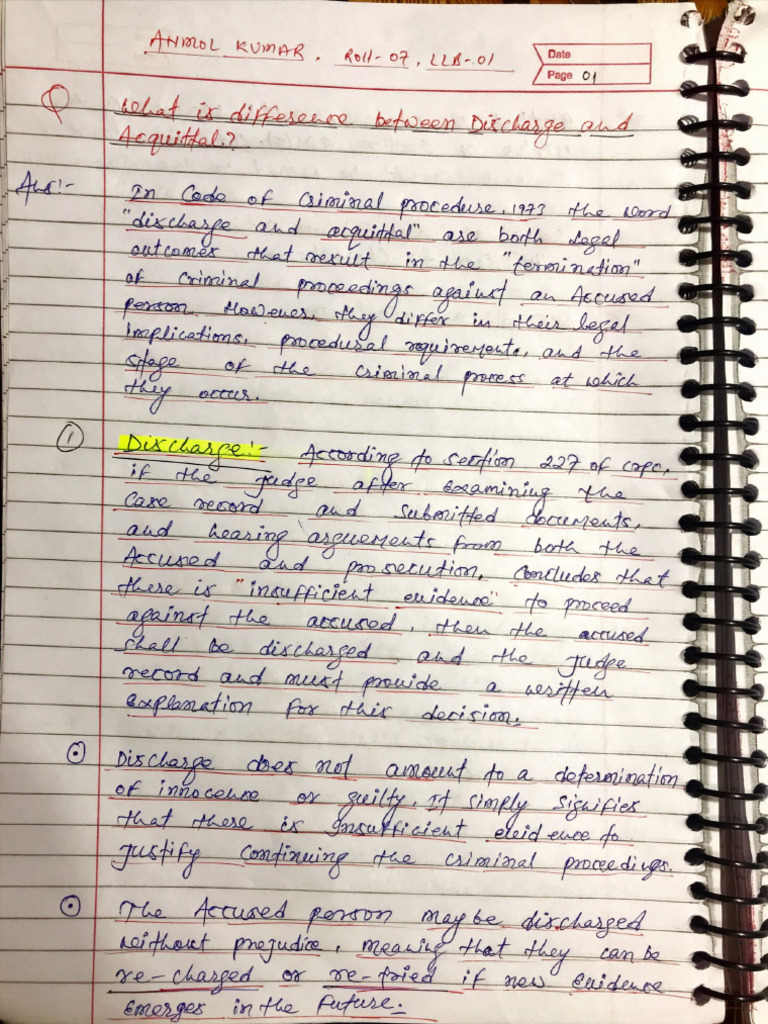 ANMOL KUMAR. Roll-07, LLB-01
Date
Page 01
Q What is difference between Discharge and
Acquittal?
Ans:- In Code of Criminal procedure, 1973 the word
"discharge and acquittal" are both legal
outcomes that result in the "termination"
of criminal proceedings against an Accused
person. However, they differ in their legal
implications, procedural requirements, and the
stage of the criminal process at which
they occur.
1 Discharge:- According to section 227 of crpc,
if the judge after examining the
case record and submitted documents,
and hearing arguements from both the
Accused and prosecution, concludes that
there is "insufficient evidence" to proceed
against the accused, then the accused
shall be discharged and the judge
record and must provide a written
explanation for this decision.
Discharge does not amount to a determination
of innocence or guilty. It simply signifies
that there is insufficient evidence to
justify continuing the criminal proceedings.
The Accused person may be discharged
without prejudice, meaning that they can be
re-charged or re-tried if new evidence
emerges in the future.